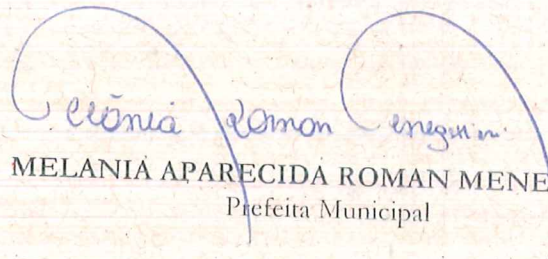 Melânia Roman Meneghini
MELANIA APARECIDA ROMAN MENE
Prefeita Municipal